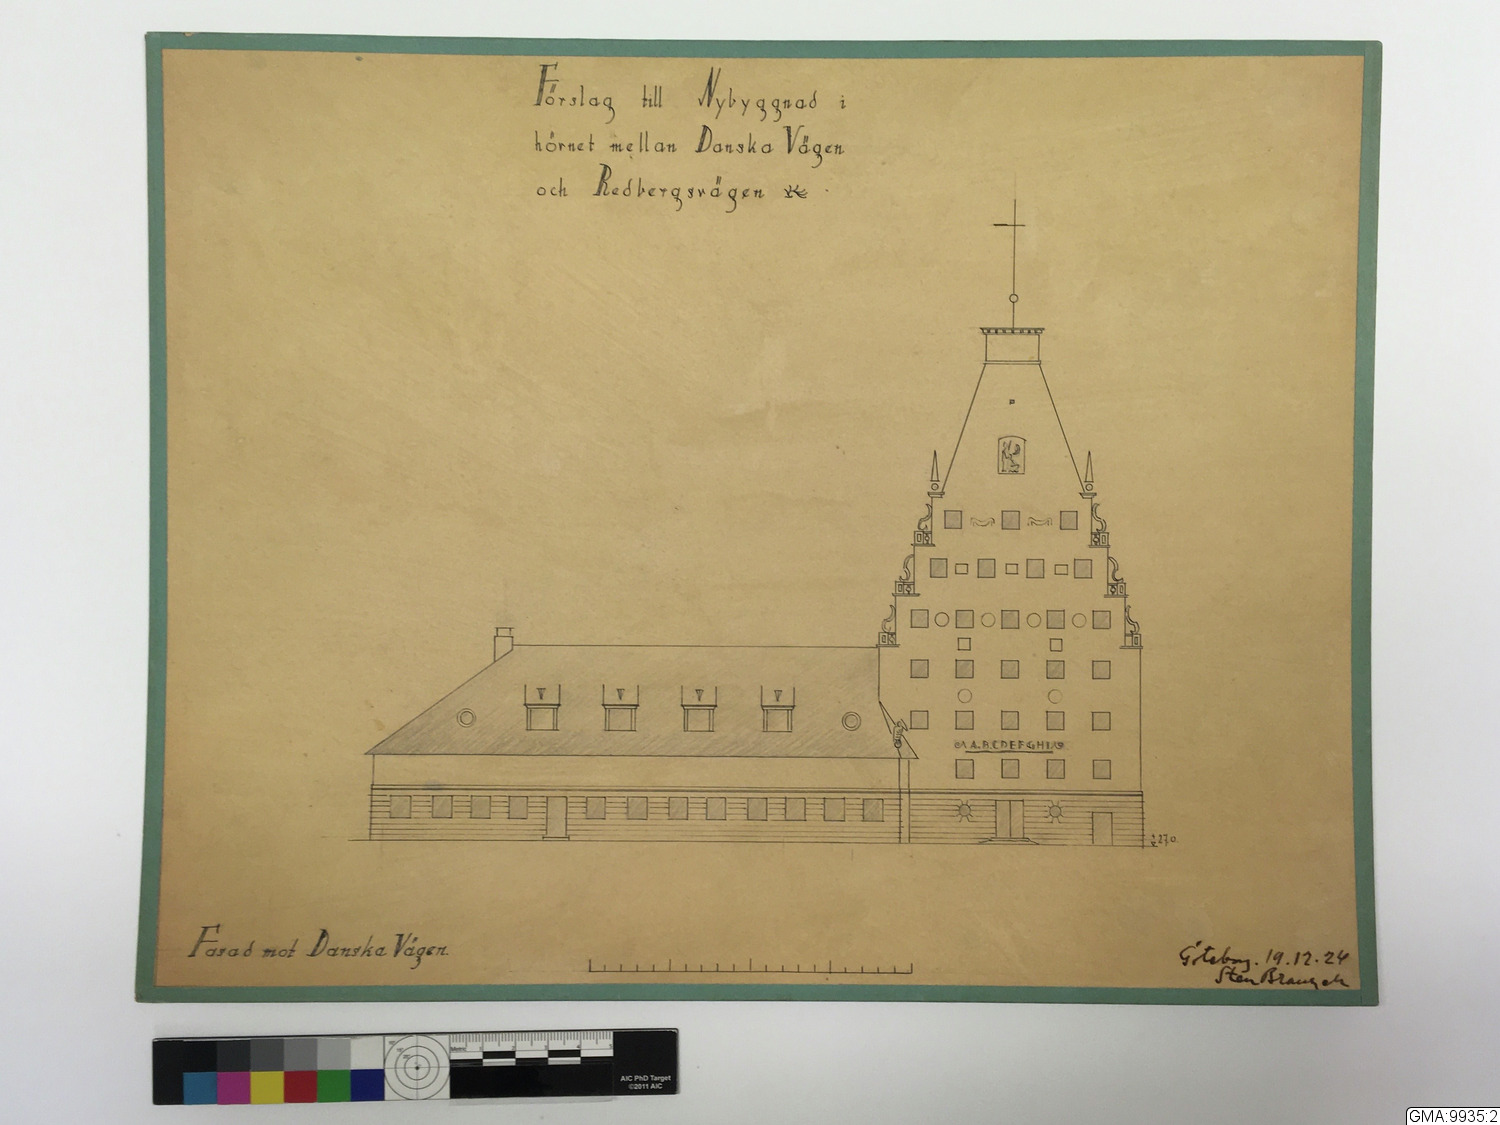 Förslag till Nybyggnad i
hörnet mellan Danska Vägen
och Redbergsvägen
A.B.CDEFGHI
270
Fasad mot Danska Vägen.
Göteborg. 19.12.24
Sten Branzell
Metric 1 2 3 4 5
AIC PhD Target
©2011 AIC
GMA:9935:2